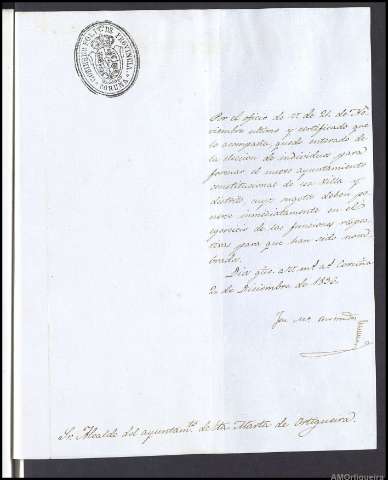 GOBIERNO POLITICO DE PROVINCIA. CORUÑA
Por el oficio de V. de 21. de No-
viembre ultimo y certificado que
lo acompaña, quedo enterado de
la eleccion de individuos para
formar el nuevo ayuntamiento
constitucional de esa Villa y
distrito, cuyos sugetos deben po-
nerse inmediatamente en el
ejercicio de las funciones respec-
tivas para que han sido nom-
brados.
Dios gue. a V. m.s a.s Coruña
2 de Diciembre de 1836.
Sr. Alcalde del ayuntam.to de Sta. Marta de Ortigueira.
AMOrtigueira